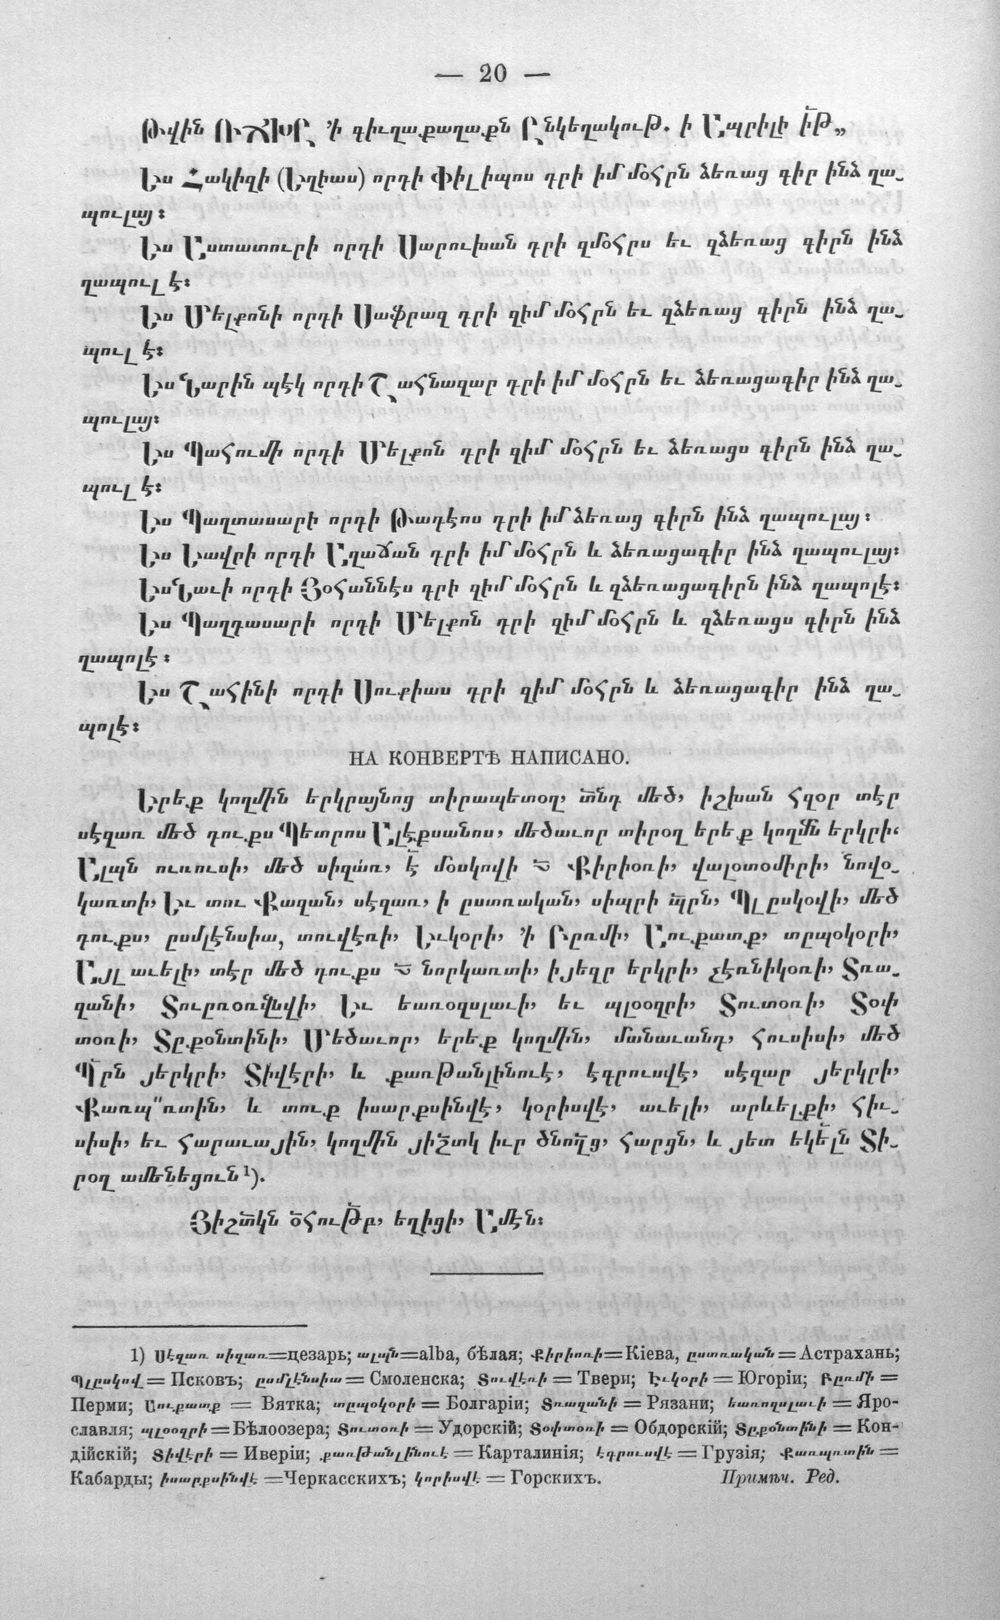 — 20 —
Թվին ՌՃԽԸ ՚ի գիւղաքաղաքն Ընկեղակութ. ի Ապրիլի ԺԹ„
Ես Հակիզի (Եղիաս) որդի Փիլիպոս դրի իմ մօհրն ձեռաց գիր ինձ ղա-
պուլայ։
Ես Աստատուրի որդի Սարուխան դրի զմօհրս եւ զձեռաց գիրն ինձ
ղապուլ է։
Ես Մելքոնի որդի Սաֆրազ դրի զիմ մօհրն եւ զձեռաց գիրն ինձ ղա-
պուլ է։
Ես Նարին պէկ որդի Շահնազար դրի իմ մօհրն եւ ձեռացագիր ինձ ղա-
պուլայ։
Ես Պահումի որդի Մելքոն դրի զիմ մօհրն եւ ձեռացս գիրն ինձ ղա-
պուլ է։
Ես Պաղտասարի որդի Թադէոս դրի իմ ձեռաց գիրն ինձ ղապուլայ։
Ես Եավրի որդի Աղաճան դրի իմ մօհրն և ձեռացագիր ինձ ղապուլայ։
Ես Նաւի որդի Յօհաննէս դրի զիմ մօհրն և զձեռացագիրն ինձ ղապոլէ։
Ես Պաղդասարի որդի Մելքոն դրի զիմ մօհրն և զձեռացս գիրն ինձ
ղապոլէ։
Ես Շահինի որդի Սուքիաս դրի զիմ մօհրն և ձեռացագիր ինձ ղա-
պոլէ։
НА КОНВЕРТѢ НАПИСАНО.
Երեք կողմին երկրայնոց տիրապետօղ, մեծ, իշխան հզօր տէր
սէզառ մեծ դուքս Պետրոս Ալէքսանոս, մեծաւոր տիրօղ երեք կողմն երկրի,
Ալպն ուռուսի, մեծ սիզառ, է մօսկովի Քիրիօռի, վալօտօմիրի, նովօ-
կառտի, Եւ տու Քազան, սէզառ, ի ըստռական, սիպրի Պլըսկօվի, մեծ
դուքս, ըսմլէնսիա, տուվէռի, Եւկօրի, ՚ի Բըռմի, Աուքատք, տըպօկօրի,
Այլ աւելի, տէր մեծ դուքս նորկառտի, իյեղր երկրի, չէռնիկօռի, Տռա-
զանի, Տուրռօռվնվի, Եւ եառօզսլաւի, եւ պլօօզրի, Տուտօռի, Տօփ
տօռի, Տըքօնտինի, Մեծաւոր, երեք կողմին, մանաւանդ, հուսիսի, մեծ
Պրն յերկրի, Տիվէրի, և քառթանլինուէ, էգրուսվէ, սէզար յերկրի,
Քառպռտին, և տուք խսարքսինվէ, կօրիսվէ, աւելի, արևելքի, հիւ-
սիսի, եւ հարաւային, կողմին յիշտկ իւր ծնողց, հարցն, և յետ եկելն Տի-
րօղ ամենեցուն ¹).
Յիշտկն օհութբ, եղիցի, Ամէն։
1) Սէզառ սիզառ=цезарь; ալպն=alba, бѣлая; Քիրիոռի=Кіева, ըստռական=Астрахань;
Պլըսկով=Псковъ; ըսմլէնսիա=Смоленска; Տուվէռի=Твери; Եւկօրի=Югоріи; Բըռմի=
Перми; Աուքատք=Вятка; տըպօկօրի=Болгаріи; Տռազանի=Рязани; եառօզսլաւի=Яро-
славля; պլօօզրի=Бѣлоозера; Տուտօռի=Удорскій; Տօփտօռի=Обдорскій; Տըքօնտինի=Кон-
дійскій; Տիվէրի=Иверіи; քառթանլինուէ=Карталинія; էգրուսվէ=Грузія; Քառպռտին=
Кабарды; խսարքսինվէ=Черкасскихъ; կորիսվէ=Горскихъ. Примѣч. Ред.